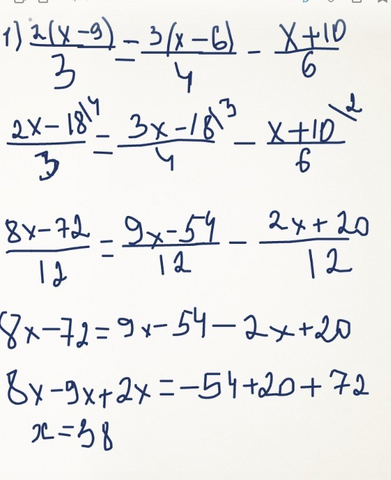 1) 2(x-9)/3 = 3(x-6)/4 - x+10/6
2x-18\4/3 = 3x-18\3/4 - x+10\2/6
8x-72/12 = 9x-54/12 - 2x+20/12
8x-72=9x-54-2x+20
8x-9x+2x=-54+20+72
x=38